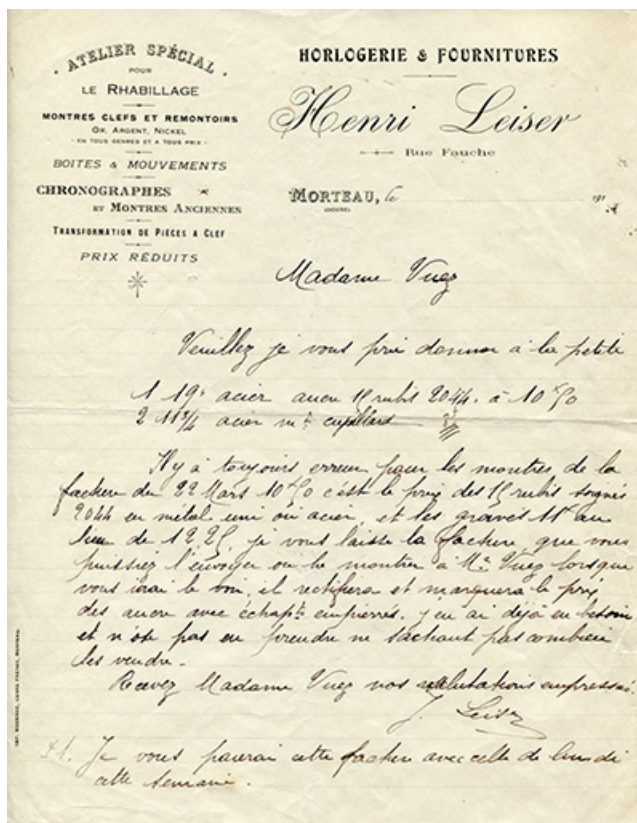 ATELIER SPÉCIAL
POUR
LE RHABILLAGE
MONTRES CLEFS ET REMONTOIRS
OR, ARGENT, NICKEL
- EN TOUS GENRES ET A TOUS PRIX -
BOITES & MOUVEMENTS
CHRONOGRAPHES
ET MONTRES ANCIENNES
TRANSFORMATION DE PIÈCES A CLEF
PRIX RÉDUITS
HORLOGERIE & FOURNITURES
Henri Leiser
Rue Fauche
MORTEAU, le 191
(DOUBS)
Madame Vuez
Veuillez je vous prie donner à la petite
1 19" acier ancre 15 rubis 2044. à 10f50
2 11 3/4 acier mt cupillard
Il y à toujours erreur pour les montres de la
facture du 22 Mars 10f50 c'est le prix des 15 rubis soignés
2044 en métal uni ou acier et les gravés 11f au
lieu de 12 25, je vous laisse la facture que vous
puissiez l'envoyer ou le montrer à Mr Vuez lorsque
vous irai le voir, il rectifiera et marquera le prix
des ancre avec échapts empierrés. j'en ai déjà eu besoin
et n'ose pas en prendre ne sachant pas combien
les vendre.
Recevez Madame Vuez nos salutations empressées
J. Leiser
Je vous paierai cette facture avec celle de lundi
cette semaine.